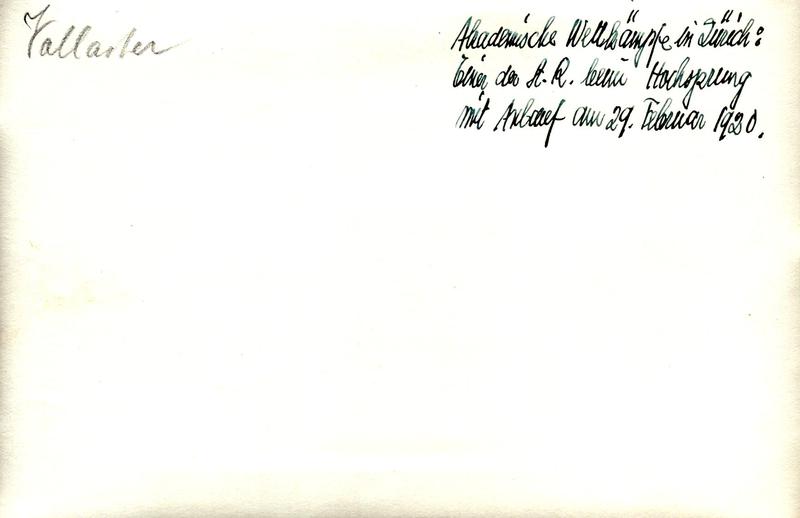 Vallaster
Akademische Wettkämpfe in Zürich:
Einer der A. R. beim Hochsprung
mit Anlauf am 29. Februar 1920.